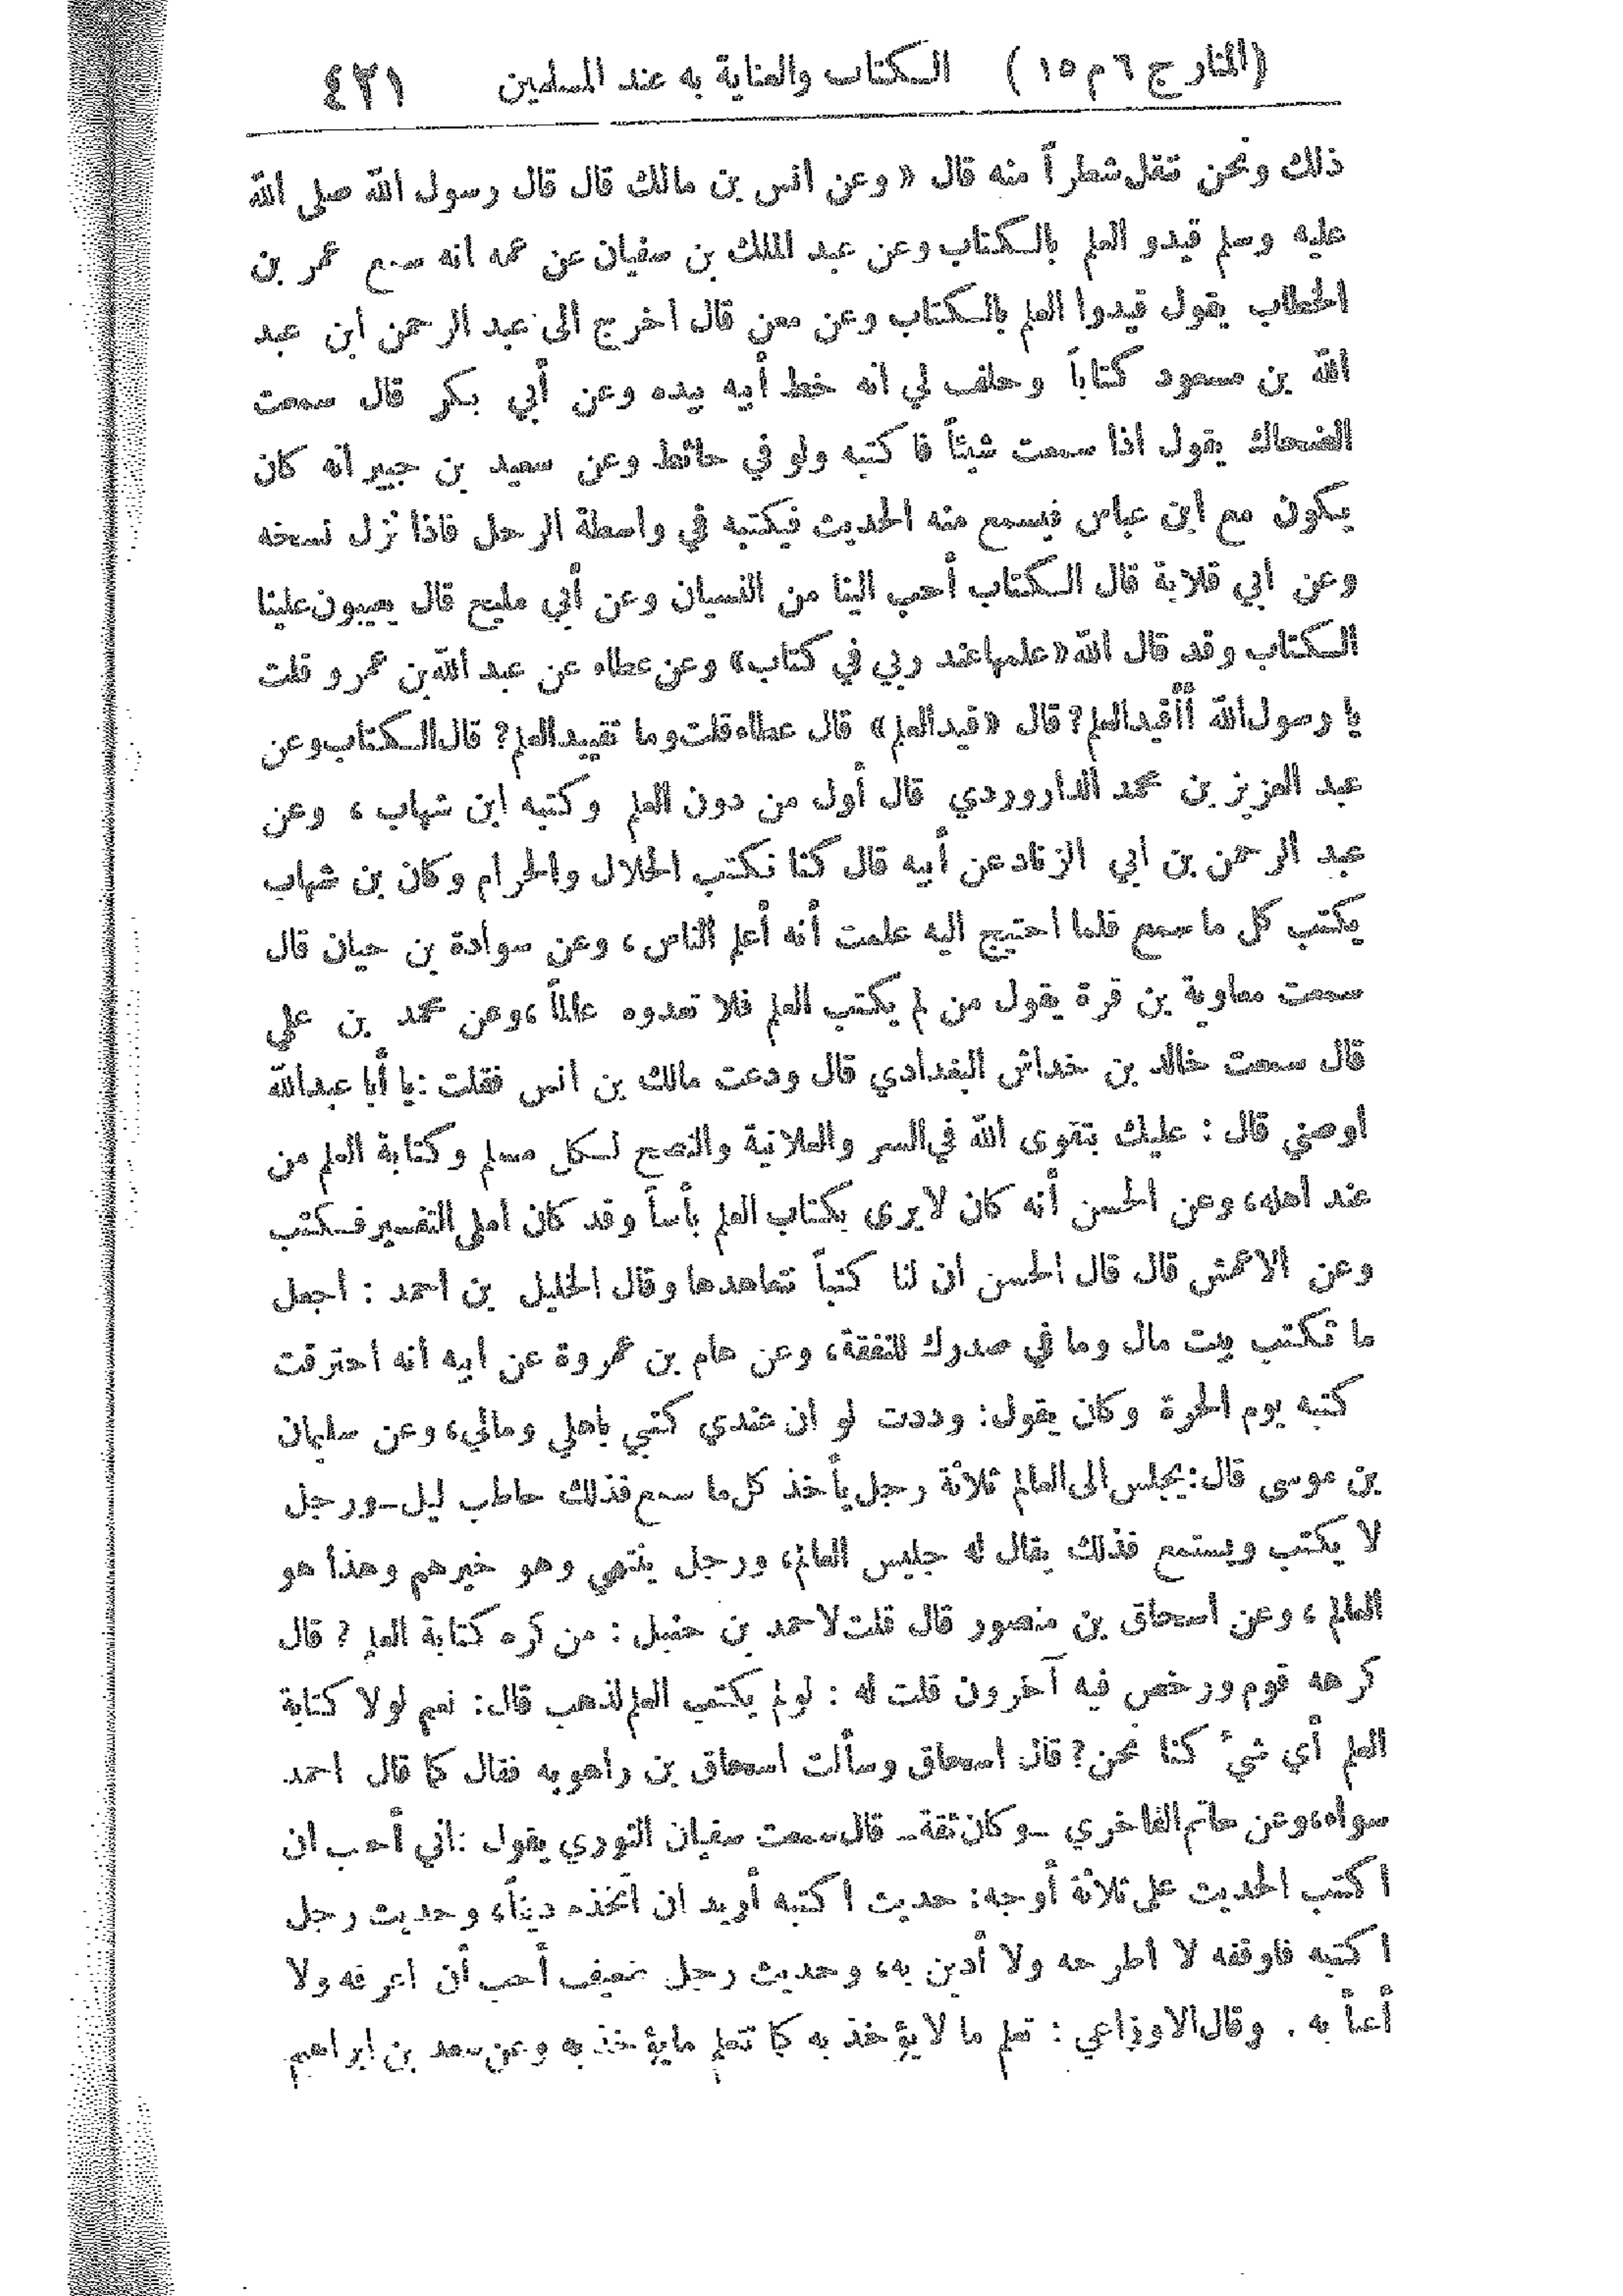 (المنار ج ٦ م ١٥) الكتاب والعناية به عند المسلمين ٤٢١
ذلك ونحن ننقل شطراً منه قال « وعن انس بن مالك قال قال رسول الله صلى الله
عليه وسلم قيدو العلم بالكتاب وعن عبد الملك بن سفيان عن عمه انه سمع عمر بن
الخطاب يقول قيدوا العلم بالكتاب وعن معن قال اخرج الى عبد الرحمن ابن عبد
الله بن مسعود كتاباً وحلف لي انه خط أبيه بيده وعن أبي بكر قال سمعت
الضحاك يقول اذا سمعت شيئاً فاكتبه ولو في حائط وعن سعيد بن جبير انه كان
يكون مع ابن عباس فيسمع منه الحديث فيكتبه في واسطة الرحل فاذا نزل نسخه
وعن ابي قلابة قال الكتاب أحب الينا من النسيان وعن أبي مليح قال يعيبون علينا
الكتاب وقد قال الله « علمها عند ربي في كتاب » وعن عطاء عن عبد الله بن عمرو قلت
يا رسول الله أأقيد العلم؟ قال « قيد العلم » قال عطاء قلت وما تقييد العلم؟ قال الكتاب وعن
عبد العزيز بن محمد الداروردي قال أول من دون العلم وكتبه ابن شهاب ، وعن
عبد الرحمن بن ابي الزناد عن أبيه قال كنا نكتب الحلال والحرام وكان بن شهاب
يكتب كل ما سمع فلما احتيج اليه علمت أنه أعلم الناس ، وعن سوادة بن حيان قال
سمعت معاوية بن قرة يقول من لم يكتب العلم فلا تعدوه عالماً ، وعن محمد بن علي
قال سمعت خالد بن خداش البغدادي قال ودعت مالك بن انس فقلت : يا أبا عبد الله
اوصني قال : عليك بتقوى الله في السر والعلانية والنصح لكل مسلم وكتابة العلم من
عند اهله ، وعن الحسن أنه كان لا يرى بكتاب العلم بأساً وقد كان املى التفسير فكتب
وعن الاعمش قال قال الحسن ان لنا كتباً نتعاهدها وقال الخليل بن احمد : اجعل
ما تكتب بيت مال وما في صدرك للنفقة ، وعن هام بن عمروة عن ابيه انه احترقت
كتبه يوم الحرة وكان يقول : وددت لو ان عندي كتبي باهلي ومالي ، وعن سليمان
بن موسى قال : يجلس الى العالم ثلاثة رجل يأخذ كل ما سمع فذلك حاطب ليل ــ ورجل
لا يكتب ويستمع فذلك يقال له جليس العالم ، ورجل ينتقي وهو خيرهم وهذا هو
العالم ، وعن اسحاق بن منصور قال قلت لاحمد بن حنبل : من كره كتابة العلم ؟ قال
كرهه قوم ورخص فيه آخرون قلت له : لو لم يكتب العلم لذهب قال : نعم لولا كتابة
العلم أي شيء كنا نحن ؟ قال اسحاق وسألت اسحاق بن راهويه فقال كما قال احمد
سواء ، وعن حاتم الفاخري ــ وكان ثقة ــ قال سمعت سفيان الثوري يقول : اني أحب ان
اكتب الحديث على ثلاثة أوجه : حديث اكتبه أريد ان اتخذه ديناً ، وحديث رجل
اكتبه فاوقفه لا اطرحه ولا أدين به ، وحديث رجل ضعيف أحب أن اعرفه ولا
أعبأ به . وقال الاوزاعي : تعلم ما لا يؤخذ به كما تتعلم ما يؤخذ به وعن سعد بن ابراهيم